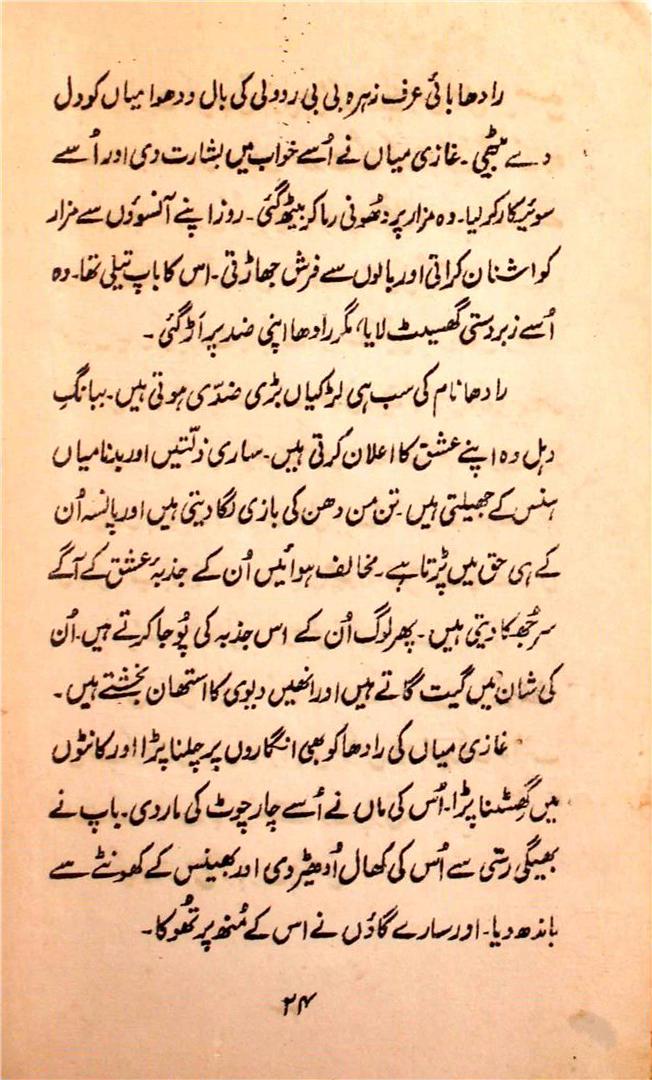 رادھا بائی عرف زہرہ بی بی ردولی کی بال ودھوا میاں کو دل
دے بیٹھی۔ غازی میاں نے اُسے خواب میں بشارت دی اور اُسے
سوئیکار کر لیا۔ وہ مزار پر دھُونی رما کر بیٹھ گئی۔ روز اپنے آنسوؤں سے مزار
کو اشنان کراتی اور بالوں سے فرش جھاڑتی۔ اس کا باپ تیلی تھا۔ وہ
اُسے زبردستی گھسیٹ لایا، مگر رادھا اپنی ضد پر اَڑ گئی۔
رادھا نام کی سب ہی لڑکیاں بڑی ضدّی ہوتی ہیں۔ ببانگِ
دہل وہ اپنے عشق کا اعلان کرتی ہیں۔ ساری ذلّتیں اور بدنامیاں
ہنس کے جھیلتی ہیں۔ تن من دھن کی بازی لگا دیتی ہیں اور پانسہ اُن
کے ہی حق میں پڑتا ہے۔ مخالف ہوائیں اُن کے جذبۂ عشق کے آگے
سر جُھکا دیتی ہیں۔ پھر لوگ اُن کے اس جذبہ کی پُوجا کرتے ہیں۔ اُن
کی شان میں گیت گاتے ہیں اور انھیں دیوی کا استھان بخشتے ہیں۔
غازی میاں کی رادھا کو بھی انگاروں پر چلنا پڑا اور کانٹوں
میں گھِسٹنا پڑا۔ اُس کی ماں نے اُسے چار چوٹ کی مار دی۔ باپ نے
بھیگی رسّی سے اُس کی کھال اُدھیڑ دی اور بھینس کے کھونٹے سے
باندھ دیا۔ اور سارے گاؤں نے اس کے مُنھ پر تھُوکا۔
۲۴